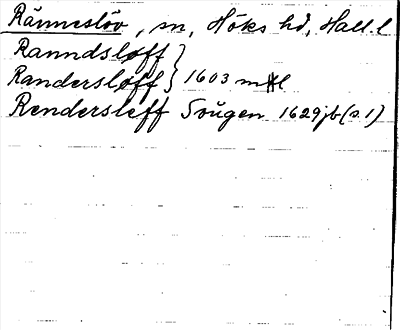 Ränneslöv, sn, Höks hd, Hall. l
Ranndsloff }
Randersloff } 1603 mtl
Rendersleff Sougen 1629 jb (s. 1)